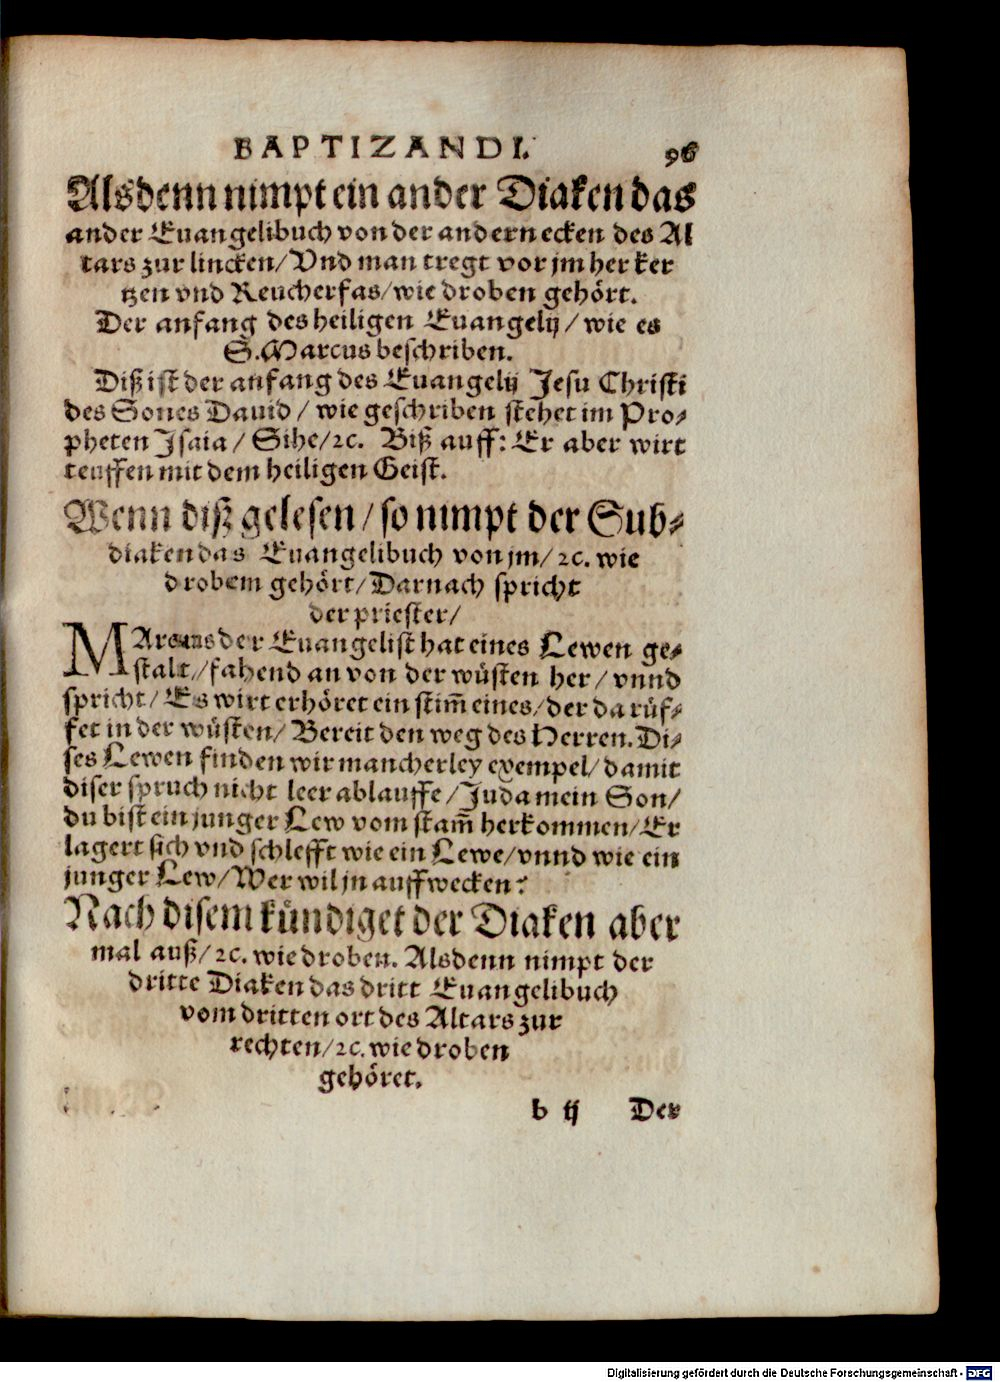 BAPTIZANDI. 96
Alsdenn nimpt ein ander Diaken das
ander Euangelibuch von der andern ecken des Al
tars zur lincken/Vnd man tregt vor jm her ker
tzen vnd Reucherfas/wie droben gehört.
Der anfang des heiligen Euangelij/wie es
S.Marcus beschriben.
Diß ist der anfang des Euangelij Jesu Christi
des Sones Dauid/wie geschriben stehet im Pro⸗
pheten Isaia/Sihe/ꝛc. Biß auff: Er aber wirt
teuffen mit dem heiligen Geist.
Wenn diß gelesen/so nimpt der Sub⸗
diaken das Euangelibuch von jm/ꝛc. wie
drobem gehört/Darnach spricht
der priester/
MArcus der Euangelist hat eines Lewen ge⸗
stalt/fahend an von der wůsten her/vnnd
spricht/Es wirt erhöret ein stim̃ eines/der da růf⸗
fet in der wůsten/Bereit den weg des Herren.Di⸗
ses Lewen finden wir mancherley exempel/damit
diser spruch nicht leer ablauffe/Juda mein Son/
du bist ein junger Lew vom stam̃ herkommen/Er
lagert sich vnd schlefft wie ein Lewe/vnnd wie ein
junger Lew/Wer wil jn auffwecken?
Nach disem kůndiget der Diaken aber
mal auß/ꝛc. wie droben. Alsdenn nimpt der
dritte Diaken das dritt Euangelibuch
vom dritten ort des Altars zur
rechten/ꝛc. wie droben
gehöret.
b ij Der
Digitalisierung gefördert durch die Deutsche Forschungsgemeinschaft - DFG